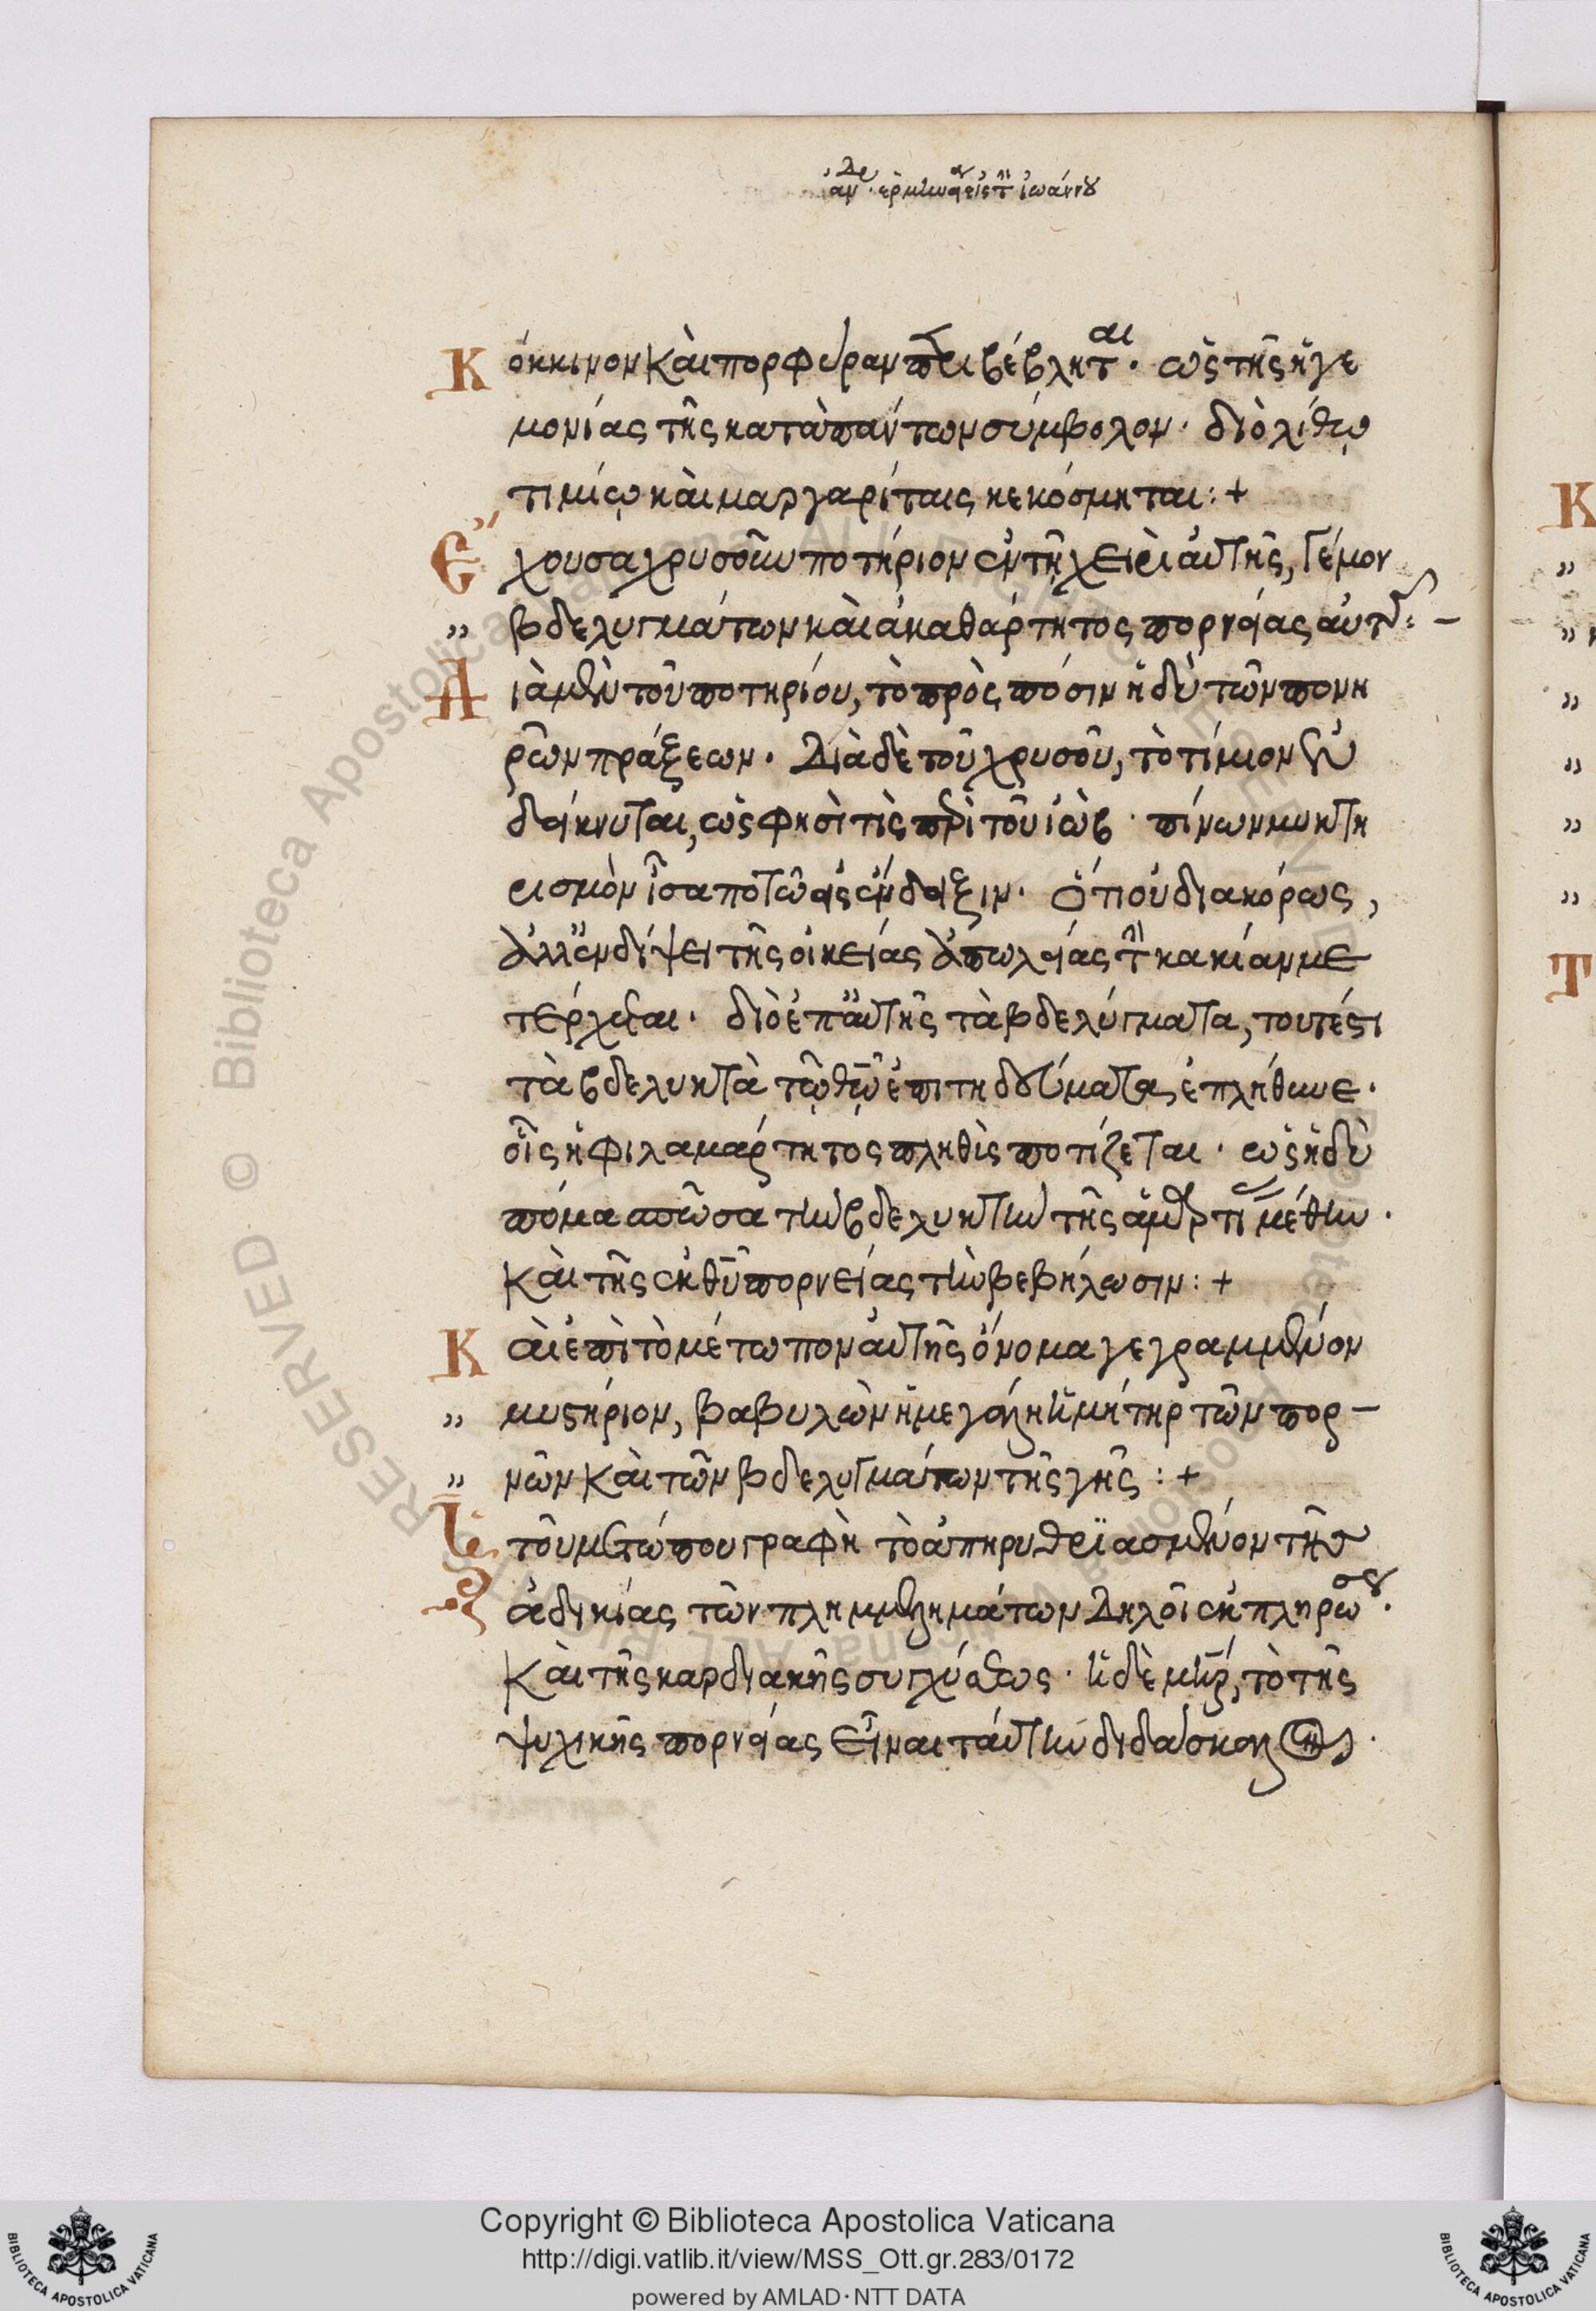 Κόκκινον καὶ πορφύραν περιβέβληται· ὡς τῆς ἡγε
μονίας τῆς κατὰ πάντων σύμβολον· διὸ λίθῳ
τιμίῳ καὶ μαργαρίταις κεκόσμηται:+
Ἔχουσα χρυσοῦν ποτήριον ἐν τῇ χειρὶ αὐτῆς, γέμον
„ βδελυγμάτων καὶ ἀκαθάρτητος πορνείας αὐτῆς:–
Διὰ μὲν τοῦ ποτηρίου, τὸ πρὸς πόσιν ἡδὺ τῶν πονη
ρῶν πράξεων. Διὰ δὲ τοῦ χρυσοῦ, τὸ τίμιον
δείκνυται, ὥς φησί τις περὶ τοῦ ἰώβ· πίνων μυκτη
ρισμὸν ἶσα ποτῷ εἰς ἔνδειξιν. ὅτι οὐ διακόρως,
ἀλλ' ἐν δίψει τῆς οἰκείας ἀπωλείας τὴν κακίαν με
τέρχεται. διὸ ἐπ' αὐτῆς τὰ βδελύγματα, τουτέστι
τὰ βδελυκτὰ τῷ θῷ ἐπιτηδεύματα ἐπλήθυνε.
οἷς ἡ φιλαμαρτήτος πληθὺς ποτίζεται. ὡς ἡδὺ
πόμα σπῶσα τὴν βδελυκτὴν τῆς ἁμαρτίας μέθην.
Καὶ τῆς ἐκ θῦ πορνείας τὴν βεβήλωσιν:+
Καὶ ἐπὶ τὸ μέτωπον αὐτῆς ὄνομα γεγραμμένον
„ μυστήριον, βαβυλὼν ἡ μεγάλη ἡ μήτηρ τῶν πορ–
„ νῶν καὶ τῶν βδελυγμάτων τῆς γῆς:+
Ἡ τοῦ μετώπου γραφὴ τὸ ἀπηρυθριασμένον τῆς
ἀδικίας τῶν πλημμελημάτων δηλοῖ ἐκπληρώσεως.
Καὶ τῆς καρδιακῆς συγχύσεως. ἡ δὲ μηρ, τὸ τῆς
ψυχικῆς πορνείας εἶναι ταύτην διδάσκαλον.
Copyright © Biblioteca Apostolica Vaticana
http://digi.vatlib.it/view/MSS_Ott.gr.283/0172
powered by AMLAD·NTT DATA